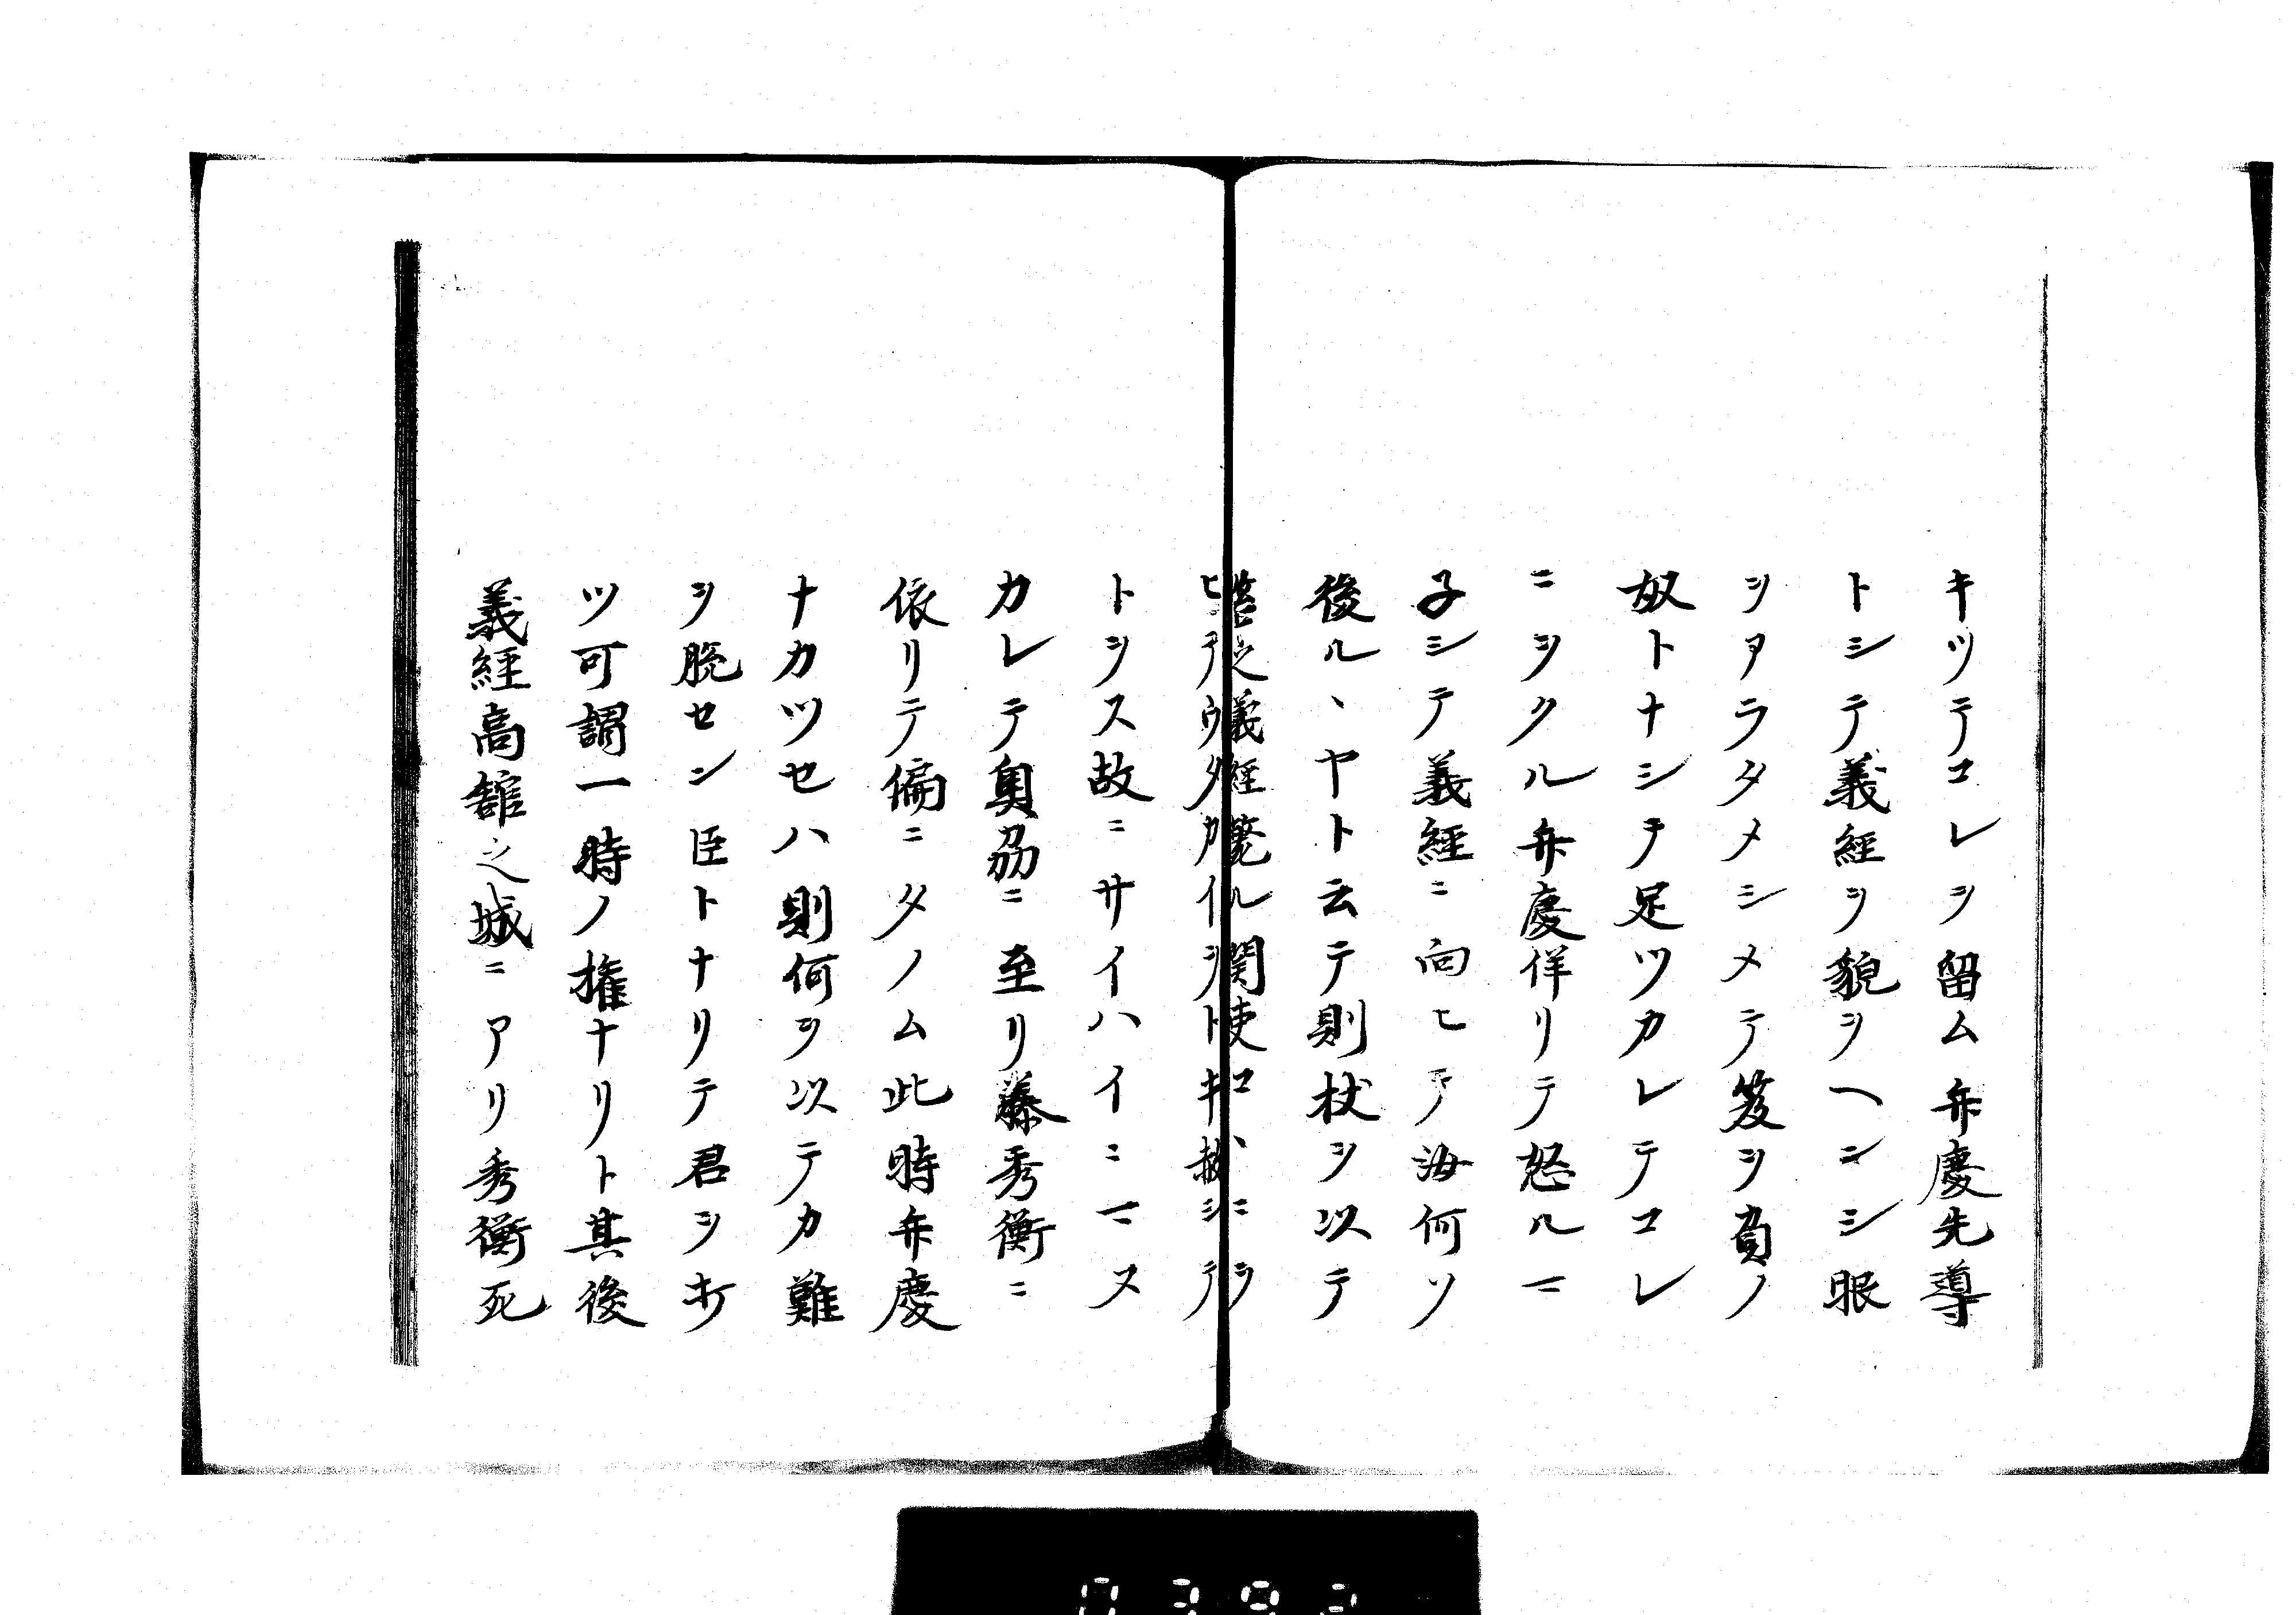 キツテコレヲ留ム弁慶先導
トシテ義経ヲ貌ヲヘンシ眼
ヲアラタメシメテ笈ヲ負ノ
奴トナシテ足ツカレテコレ
ニヲクル弁慶佯リテ怒ルマ
子シテ義経ニ向ヒテ汝何ソ
後ル丶ヤト云テ則杖ヲ以テ
之義経 関使コ丶ニヲ
ヒテウタカイヲトキ赦シテ
トヲス故ニサイハイニマヌ
カレテ奥刕ニ至リ藤秀衡ニ
依リテ偏ニタノム此時弁慶
ナカツセハ則何ヲ以テカ難
ヲ脱セン臣トナリテ君ヲ
ツ可謂一時ノ権ナリト其後
義経高舘之城ニアリ秀衡死